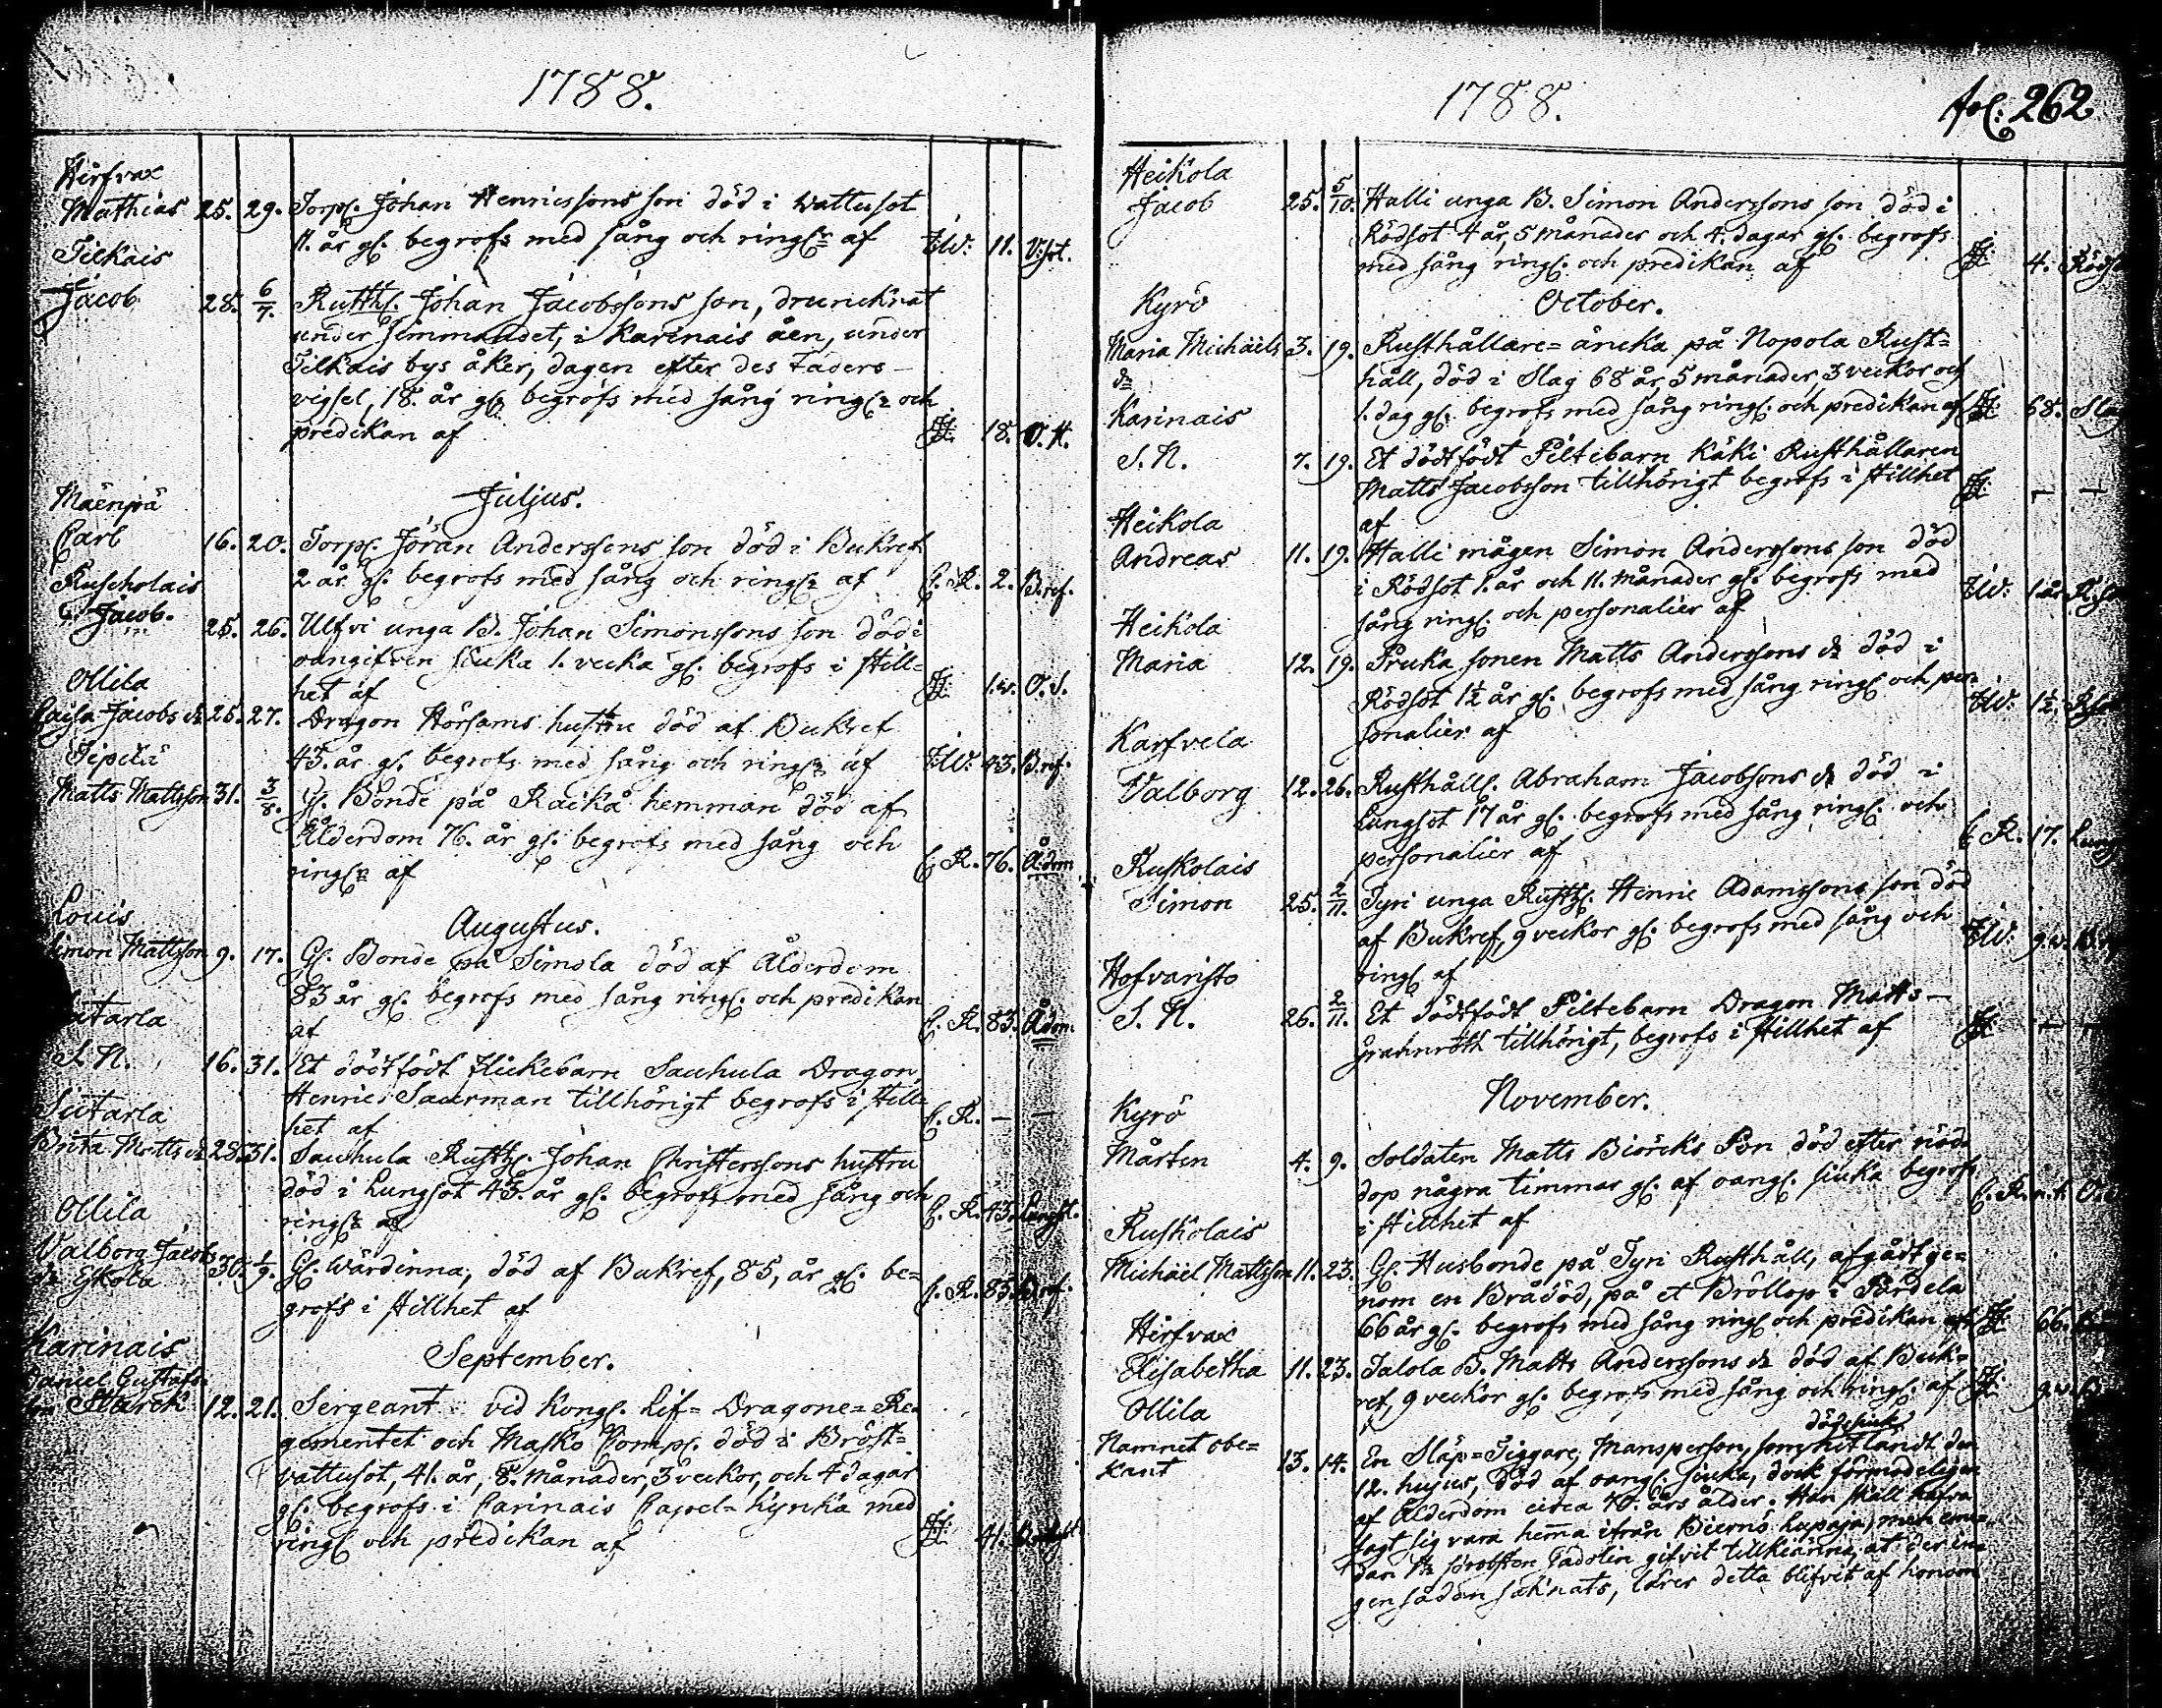 1788.
Hirfvax
Mathias 25. 29. Torp. Johan Henricssons son död i Wattusot
11. år gl. begrofs med sång och ringl:n af 11. W:sot.
Tilkais
Jacob 28. 6/7. Rusth. Johan Jacobssons son, druncknat
under simmandet, i Karinais åen, under
Tilkais bys åker, dagen efter des Faders
vigsel, 18. år gl. begrofs med sång ringl:n och
predikan af 18. O. H.
Julius.
Mäenpä
Carl 16. 20. Torp. Jöran Anderssons son död i Bukref
2 år gl. begrofs med sång och ringl:n af C. R. 2. B.ref.
Ruscholais
Jacob. 25. 26. Ulfvi unga B. Johan Simonssons son död i
oangifven siuka 1. vecka gl. begrofs i still=
het af 1.w. O. S.
Ollila
Caisa Jacobs dr 25. 27. Dragon Hörsams hustru död af Bukref
43. år gl. begrofs med sång och ringl:n af 43. B.ref.
Sipilä
Matts Mattsson 31. 3/8. Gl. Bonde på Raicka hemman död af
Ålderdom 76. år gl. begrofs med sång och
ringl:n af C. R. 76. Å:dom
Augustus.
Louis
Simon Mattsson 9. 17. Gl. Bonde på Simola död af Ålderdom
83 år gl. begrofs med sång ringl. och predikan
af C. R. 83. Ådom.
S. N. 16. 31. Et dödfödt flickebarn Sauhula Dragon
Henric Sauerman tillhörigt begrofs i still=
het af C. R. — —
Sutarla
Brita Matts dr 28. 31. Sauhula Rusth. Johan Christerssons hustru
död i Lungsot 43. år gl. begrofs med sång och
ringl:n af C. R. 43. Lungst.
Ollila
Valborg Jacobs
dr Eskola 30. 1/9. Gl. Wärdinna, död af Bukref, 85, år gl. be=
grofs i stillhet af C. R. 85. B.ref.
September.
Karinais
Daniel Gustafs=
son Starck 12. 21. Sergeant vid Kongl. Lif= Dragone= Re=
gementet och Masko Comp. död i Bröst=
vattusot, 41. år, 8. månader, 3 veckor, och 4 dagar
gl. begrofs i Carinais Capel= kyrcka med
ringl och predikan af 41.
1788.
fol: 262
Heikola
Jacob 25. 5/10. Halli unga B. Simon Anderssons son död i
Rödsot 4 år, 5 månader och 4. dagar gl. begrofs
med sång ringl. och predikan af 4. Rödso
October.
Kyrö
Maria Michaels 3. 19. Rusthållare= äncka på Nopola Rust=
dr håll, död i Slag 68 år, 5 månader, 3 veckor och
1. dag gl. begrofs med sång ringl. och predikan af 68. Slag
Karinais
S. N. 7. 19. Et dödfödt Piltebarn Käki Rusthållaren
Matts Jacobsson tillhörigt begrofs i stillhet
af — —
Heikola
Andreas 11. 19. Halli mågen Simon Anderssons son död
i Rödsot 1. år och 11. månader gl. begrofs med
sång ringl. och personalier af 1.år
Heikola
Maria 12. 19. Pruka sonen Matts Anderssons dr död i
Rödsot 1½ år gl. begrofs med sång ringl och per=
sonalier af 1½.
Karfvela
Valborg 12. 26. Rusthåll. Abraham Jacobssons dr död i
Lungsot 17 år gl. begrofs med sång ringl. och
personalier af C. R. 17. Lung
Ruskolais
Simon 25. 2/11. Jyri unga Rusth. Henric Adamssons son död
af Bukref, 9 veckor gl. begrofs med sång och
ringl af 9.w.
Hofvaristo
S. N. 26. 2/11. Et dödfödt Piltebarn Dragon Matts
Grahnroth tillhörigt, begrofs i stillhet af — —
November.
Kyrö
Mårten 4. 9. Soldaten Matts Biörcks Son död efter nöd=
dop några timmar gl. af oangl. siuka begrofs
i stillhet af C. R. n.t.
Ruskolais
Michäel Mattsson 11. 23. Gl. Husbonde på Jyri Rusthåll, afgådt ge=
nom en Brådöd, på et Bröllop i Pärdela
66 år gl. begrofs med sång ringl och predikan af 66.
Hirfvax
Elisabetha 11. 23. Talola B. Matts Anderssons dr död af Buk=
ref, 9 veckor gl. begrofs med sång och ringl. af 9.w.
Ollila
Namnet obe=
kant 13. 14. En Släp=Tiggare, Mansperson, som dödsiuk hitlandt den
12. hujus, död af oangl. siuka, dock förmodeligen
af Ålderdom circa 70. års ålder. Han skall hafva
sagt sig vara hemma ifrån Bierno Lupaja, men eme=
dan Hr Probsten Gadolin gifvit tillkiänna, at der in=
gen sådan saknats, lärer detta blifvit af honom